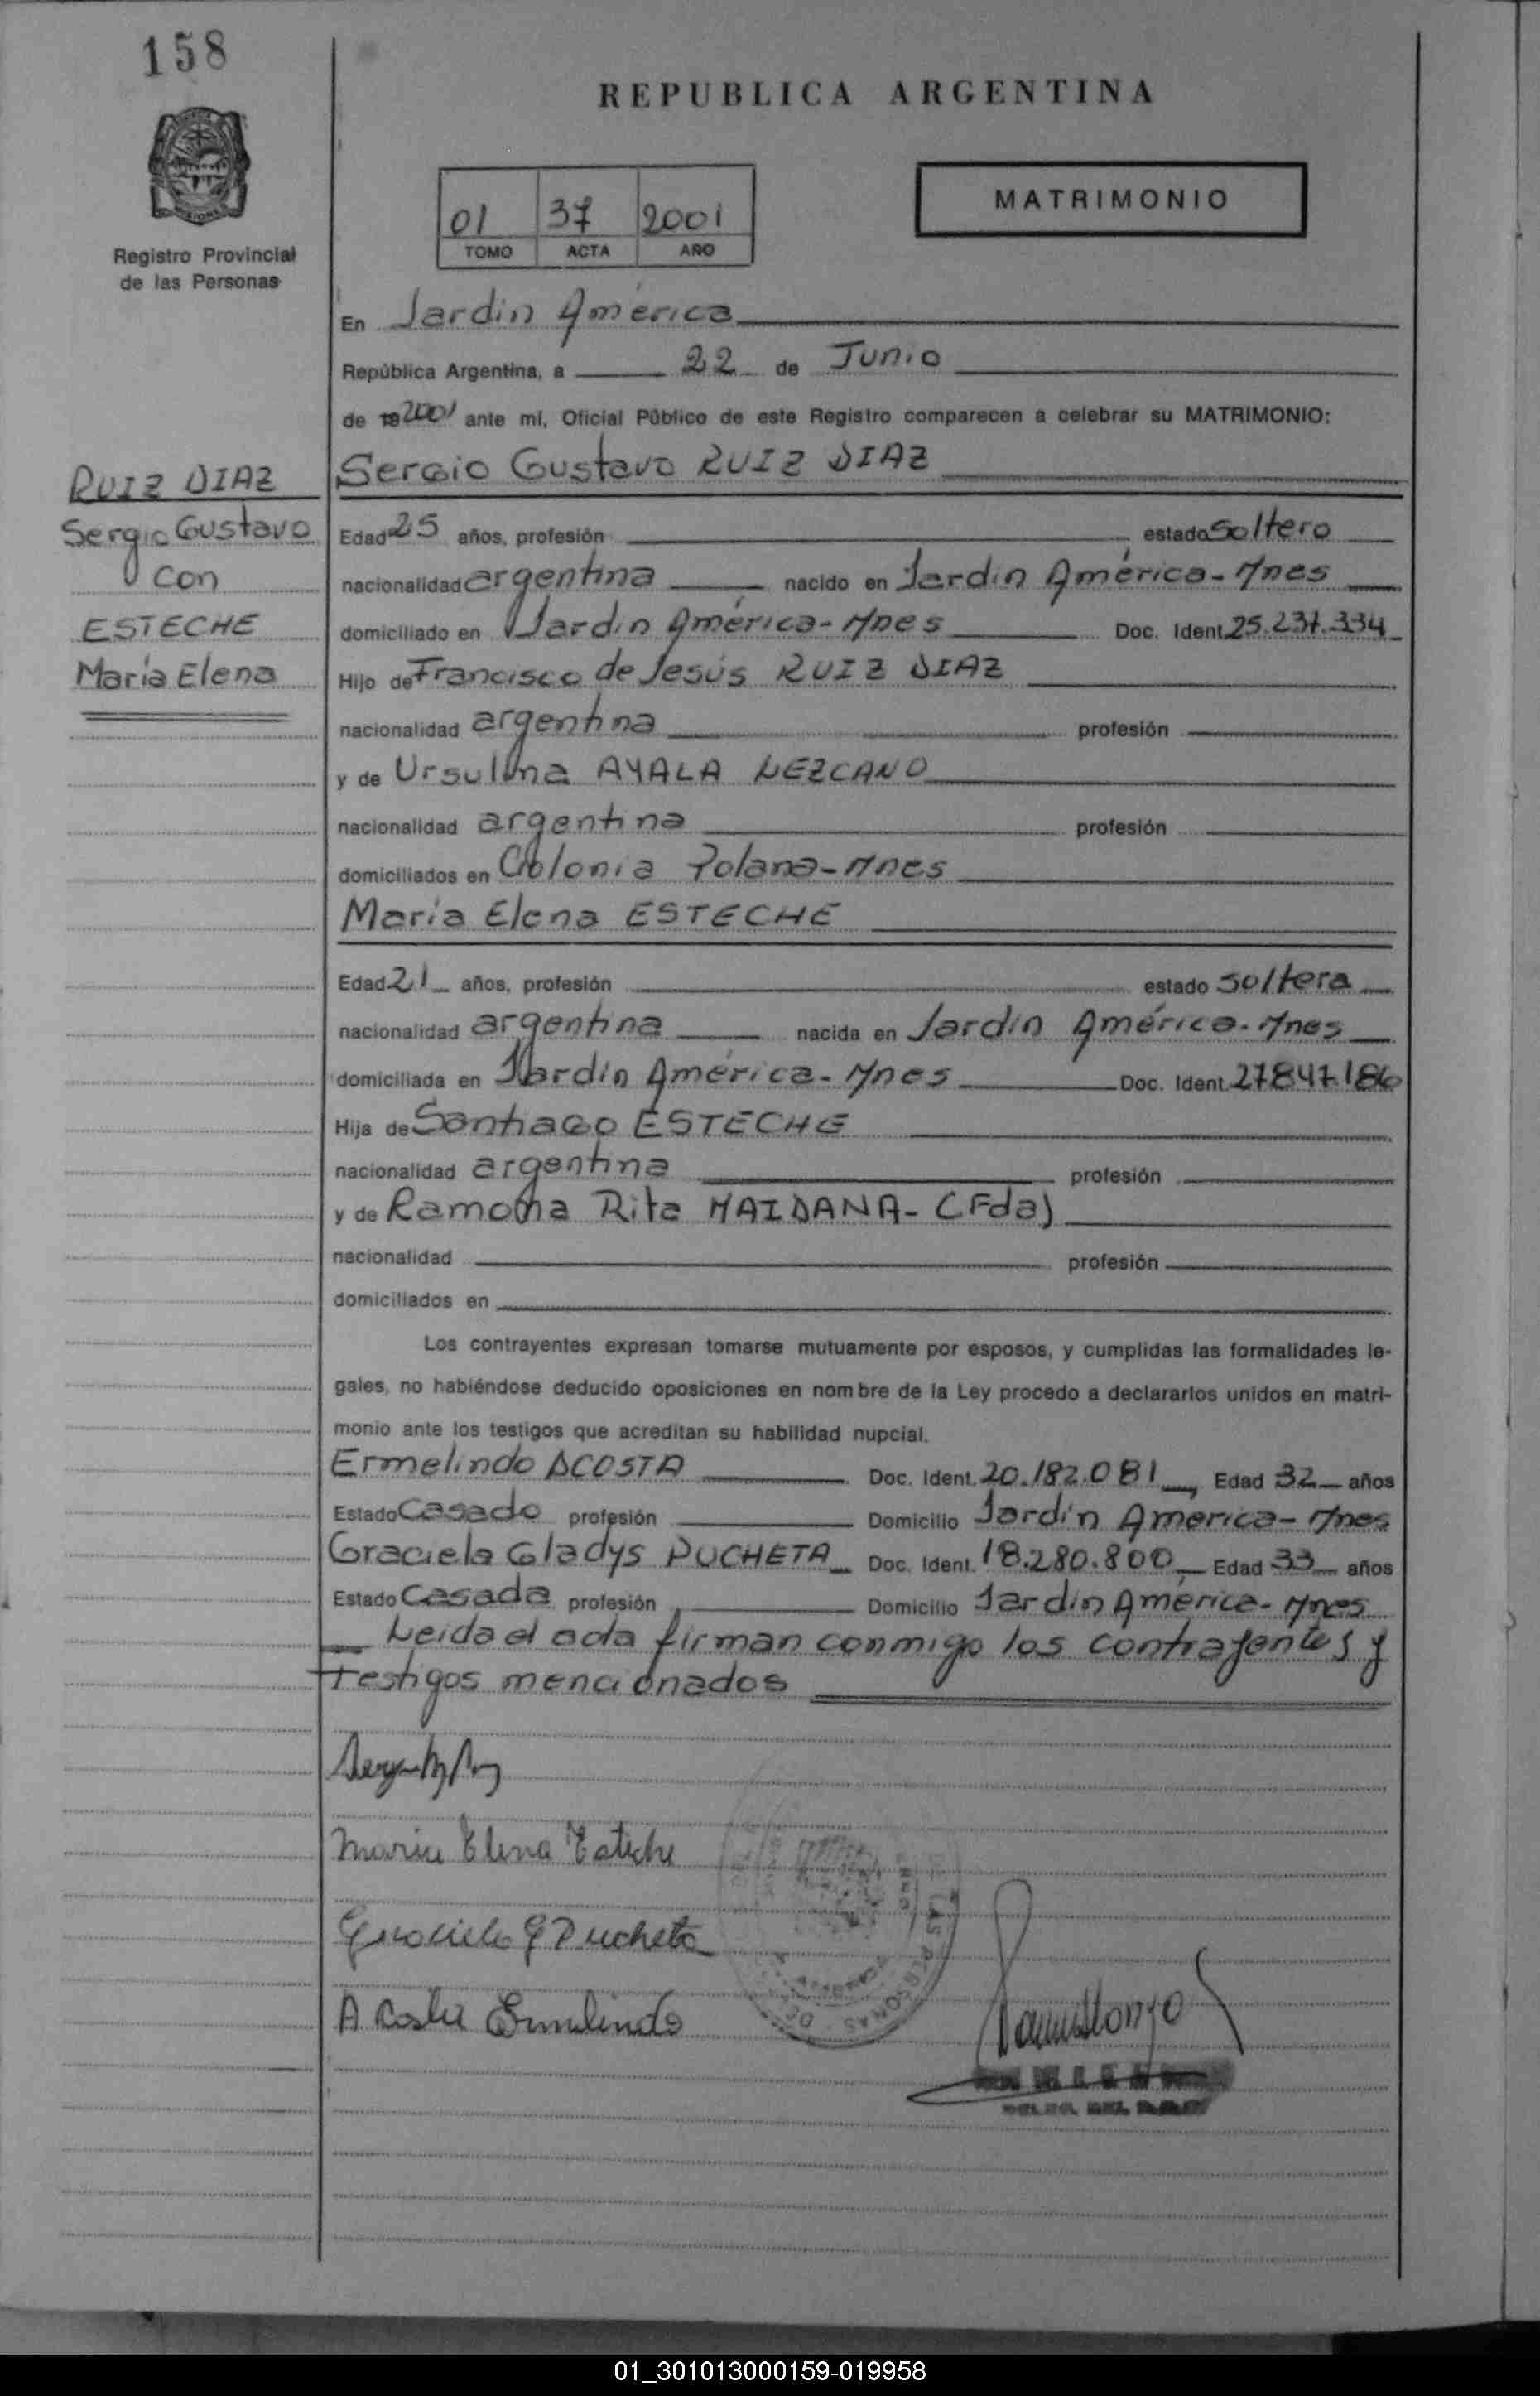 158
REPUBLICA ARGENTINA
MISIONES
Registro Provincial
de las Personas
01 37 2001
TOMO ACTA AÑO
MATRIMONIO
En Jardín América
República Argentina, a 22 de Junio
de 19 2001 ante mí, Oficial Público de este Registro comparecen a celebrar su MATRIMONIO:
Sergio Gustavo RUIZ DIAZ
RUIZ DIAZ
Sergio Gustavo
con
ESTECHE
María Elena
Edad 25 años, profesión estado soltero
nacionalidad argentina nacido en Jardín América-Mnes
domiciliado en Jardín América-Mnes Doc. Ident. 25.237.334
Hijo de Francisco de Jesús RUIZ DIAZ
nacionalidad argentina profesión
y de Ursulina AYALA LEZCANO
nacionalidad argentina profesión
domiciliados en Colonia Polana-Mnes
María Elena ESTECHE
Edad 21 años, profesión estado soltera
nacionalidad argentina nacida en Jardín América-Mnes
domiciliada en Jardín América-Mnes Doc. Ident. 27847186
Hija de Santiago ESTECHE
nacionalidad argentina profesión
y de Ramona Rita MAIDANA-(Fda)
nacionalidad profesión
domiciliados en
Los contrayentes expresan tomarse mutuamente por esposos, y cumplidas las formalidades le-
gales, no habiéndose deducido oposiciones en nombre de la Ley procedo a declararlos unidos en matri-
monio ante los testigos que acreditan su habilidad nupcial.
Ermelindo ACOSTA Doc. Ident. 20.182.081 Edad 32 años
Estado Casado profesión Domicilio Jardín América-Mnes
Graciela Gladys PUCHETA Doc. Ident. 18.280.800 Edad 33 años
Estado Casada profesión Domicilio Jardín América-Mnes
Leida el acta firman conmigo los contrayentes y
testigos mencionados
Maria Elena Esteche
Graciela G Pucheta
Acosta Ermelindo
LAS PERSONAS
01_301013000159-019958